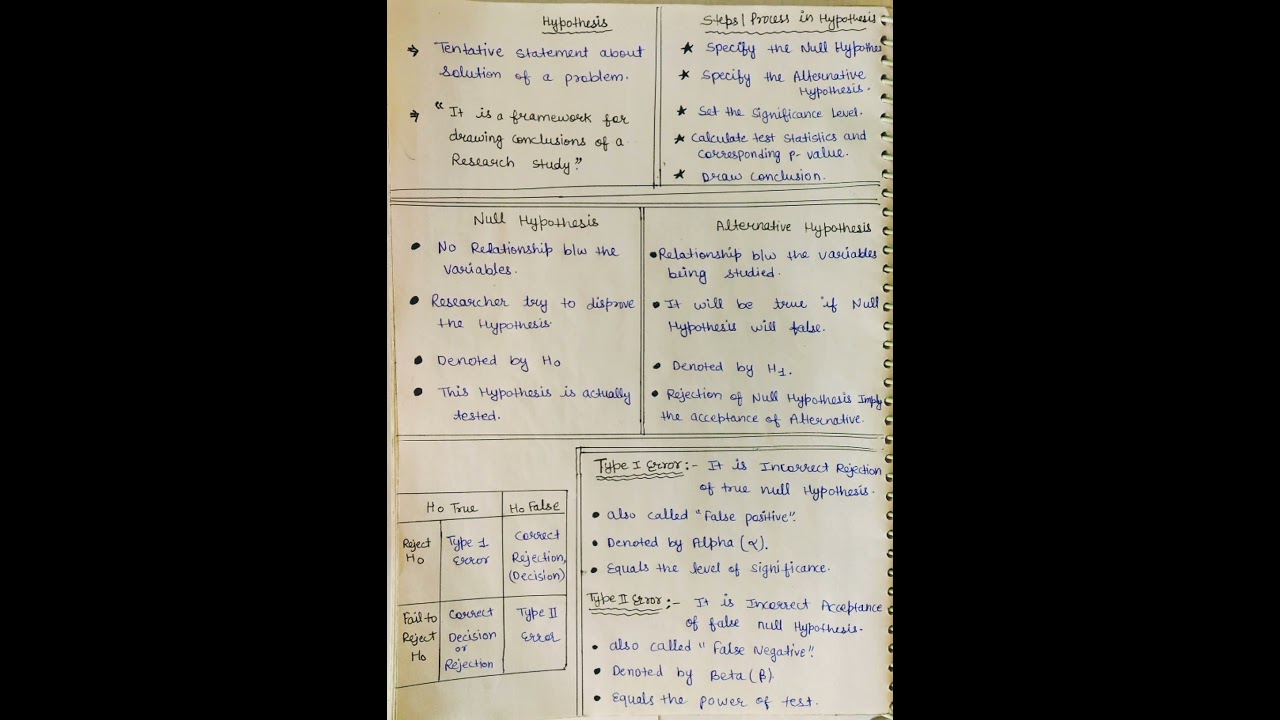 Hypothesis
⇒ Tentative statement about
solution of a problem.
⇒ "It is a framework for
drawing conclusions of a
Research study."
Steps/Process in Hypothesis
★ Specify the Null Hypothe
★ Specify the Alternative
Hypothesis.
★ Set the Significance Level.
★ Calculate test statistics and
corresponding p-value.
★ Draw conclusion.
Null Hypothesis
• No Relationship b/w the
variables.
• Researcher try to disprove
the Hypothesis.
• Denoted by H0
• This Hypothesis is actually
tested.
Alternative Hypothesis
• Relationship b/w the variables
being studied.
• It will be true if Null
Hypothesis will false.
• Denoted by H1.
• Rejection of Null Hypothesis Imply
the acceptance of Alternative.
H0 True
H0 False
Reject
H0
Type 1
Error
Correct
Rejection,
(Decision)
Fail-to
Reject
H0
Correct
Decision
or
Rejection
Type II
Error
Type I Error:- It is Incorrect Rejection
of true null Hypothesis.
• also called "False positive".
• Denoted by Alpha (α).
• Equals the level of significance.
Type II Error:- It is Incorrect Acceptance
of false null Hypothesis.
• also called "False Negative".
• Denoted by Beta (β)
• Equals the power of test.